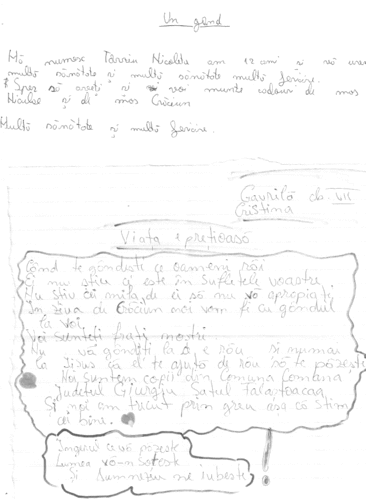 Un gând
Mă numesc Nicoleta am 12 ani și vă urez
multă sănătate și multă sănătate multă fericire.
Sper să și voi multe cadouri de mos
Niculae și de mos Crăciun
Multă sănătate și multă fericire.
Gavrilă
Cristina
Viața e prețioasă
Când te gândesti ce oameni răi
Ei nu știu ce este în Sufletele voastre
Nu Stiu că mila de ei să nu vă apropiați
În ziua de Crăciun noi vom fi cu gândul
la voi
Voi sunteți frații noștri
Nu vă gândiți la ce e rău și numai
la Iisus că el te ajută de rău să te păzește
Noi Suntem copii din Comuna Comana
Județul Giurgiu Satul Falaștoaca
Și noi am trecut prin greu așa că știm
cei bine.
Îngerii vă păzesc
Lumea vă-n
Și Dumnezeu ne iubește